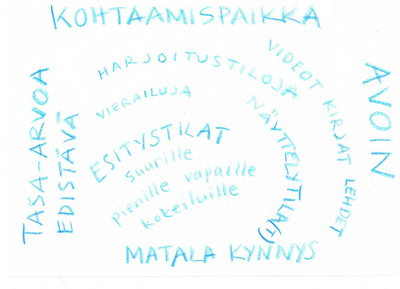 KOHTAAMISPAIKKA
HARJOITUSTILOJA
VIDEOT KIRJAT LEHDET
AVOIN
VIERAILUJA
NÄYTTELYTILA(T)
TASA-ARVOA
EDISTÄVÄ
ESITYSTILAT
suurille
pienille vapaille
kokeiluille
MATALA KYNNYS